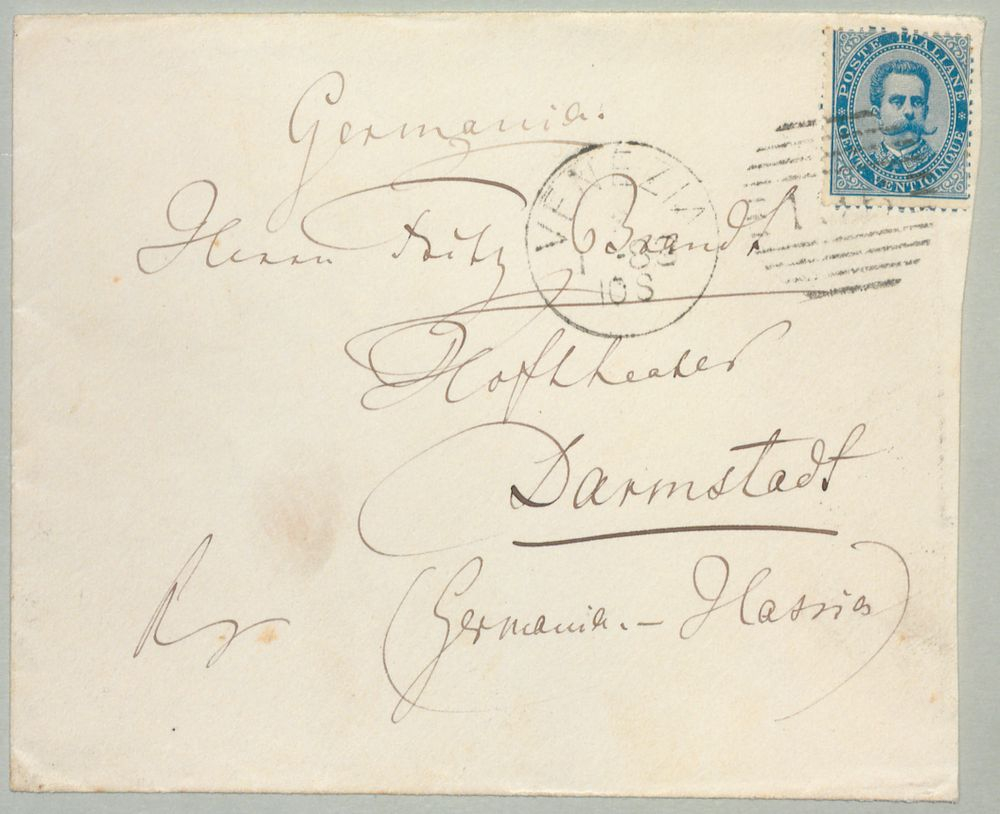 POSTE ITALIANE
CENT. VENTICINQUE
Germania.
VENEZIA
10 S
Herrn Fritz Brandt
Hoftheater
Darmstadt
(Germania. – Hassia)